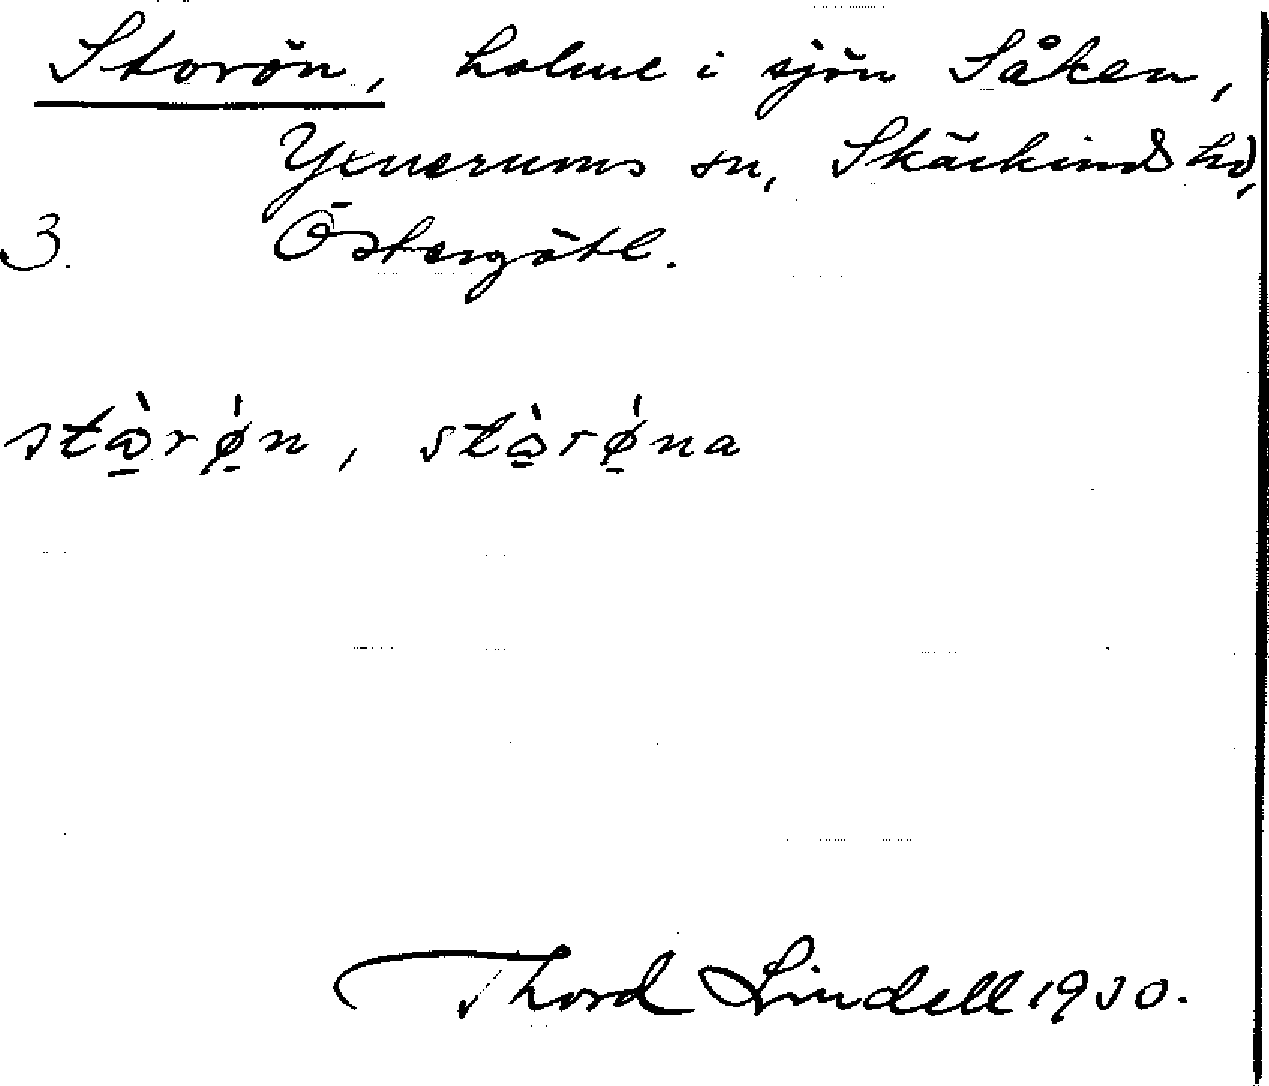 Storön, holme i sjön Såken,
Yxnerums sn, Skärkinds hd,
3. Östergötl.
stὼ̠rǿ̠n, stὼ̠rǿ̠na
Thord Lindell 1930.